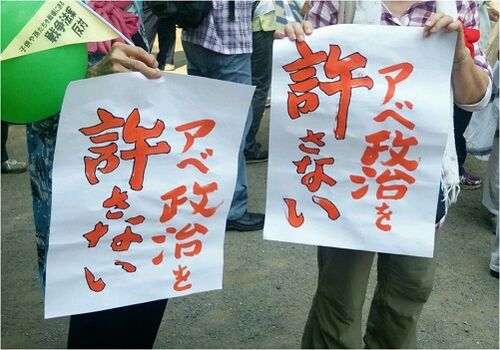 子供や孫たちを
戦争法案 反対
アベ政治を
許さない
アベ政治を
許さない